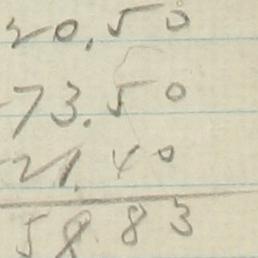 20.50
73.50
21.40
58 83